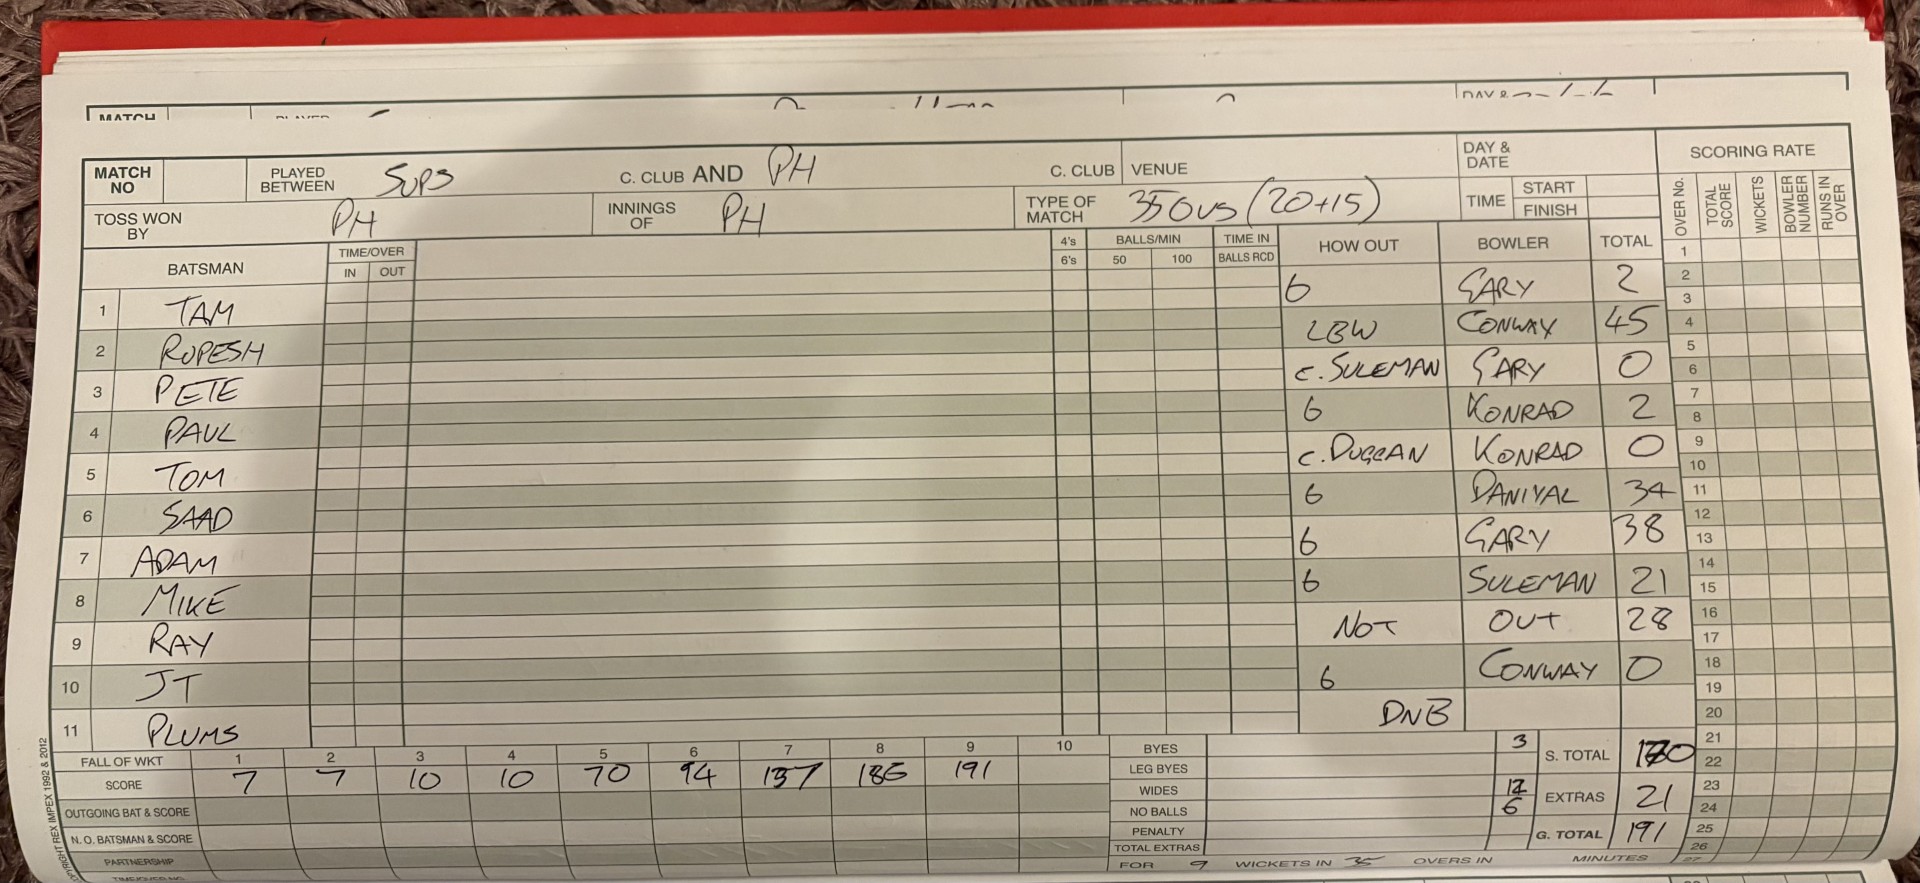 MATCH
MATCH NO PLAYED BETWEEN SUPS C. CLUB AND PH C. CLUB VENUE DAY & DATE SCORING RATE
TOSS WON BY PH INNINGS OF PH TYPE OF MATCH 35 OVS (20+15) TIME START FINISH
OVER No. TOTAL SCORE WICKETS BOWLER NUMBER RUNS IN OVER
BATSMAN TIME/OVER IN OUT 4's 6's BALLS/MIN 50 100 TIME IN BALLS RCD HOW OUT BOWLER TOTAL
1 TAM b GARY 2
2 RUPESH LBW CONWAY 45
3 PETE c. SULEMAN GARY 0
4 PAUL b KONRAD 2
5 TOM c. DUGGAN KONRAD 0
6 SAAD b DANIYAL 34
7 ADAM b GARY 38
8 MIKE b SULEMAN 21
9 RAY NOT OUT 28
10 JT b CONWAY 0
11 PLUMS DNB
1
2
3
4
5
6
7
8
9
10
11
12
13
14
15
16
17
18
19
20
21
22
23
24
25
26
27
FALL OF WKT 1 2 3 4 5 6 7 8 9 10
SCORE 7 7 10 10 70 94 137 186 191
OUTGOING BAT & SCORE
N. O. BATSMAN & SCORE
PARTNERSHIP
BYES 3
LEG BYES
WIDES 12
NO BALLS 6
PENALTY
TOTAL EXTRAS
S. TOTAL 170
EXTRAS 21
G. TOTAL 191
FOR 9 WICKETS IN 35 OVERS IN MINUTES
REX IMPEX 1992 & 2012